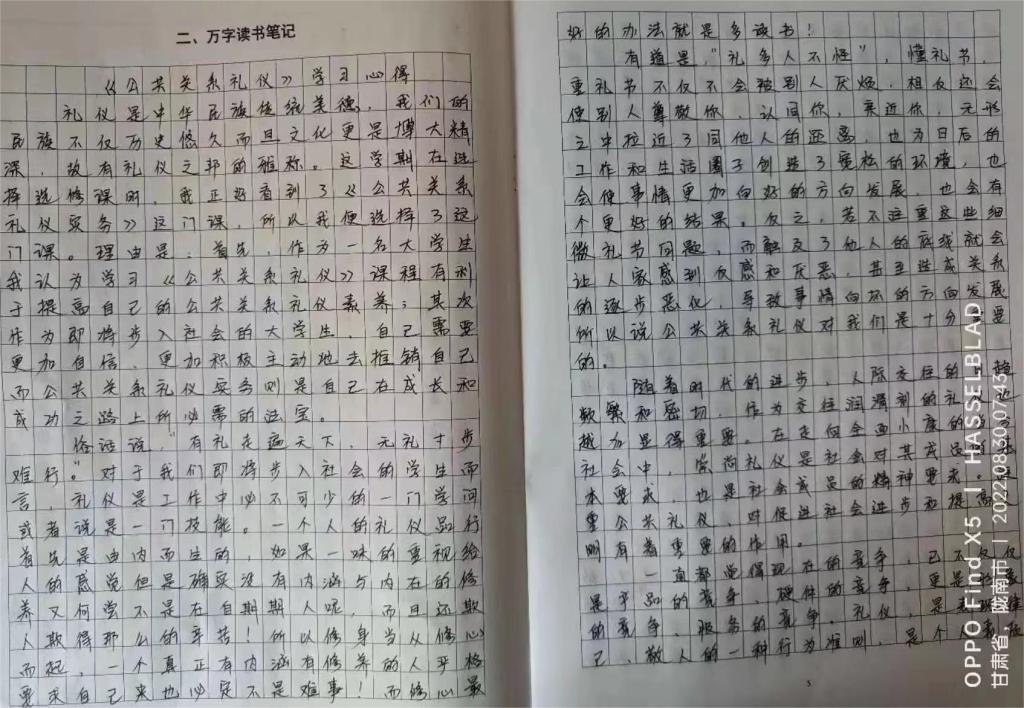 二、万字读书笔记
《公共关系礼仪》学习心得
礼仪是中华民族传统美德,我们的
民族不仅历史悠久而且文化更是博大精
深,故有礼仪之邦的雅称。这学期在选
择选修课时,我正好看到了《公共关系
礼仪实务》这门课,所以我便选择了这
门课。理由是:首先,作为一名大学生
我认为学习《公共关系礼仪》课程有利
于提高自己的公共关系礼仪素养;其次
作为即将步入社会的大学生,自己需要
更加自信、更加积极主动地去推销自己
而公共关系礼仪实务则是自己在成长和
成功之路上所必需的法宝。
俗话说,“有礼走遍天下,无礼寸步
难行。”对于我们即将步入社会的学生而
言,礼仪是工作中必不可少的一门学问
或者说是一门技能。一个人的礼仪品行
首先是由内而生的,如果一味的重视给
人的感觉但是确实没有内涵与内在的修
养又何尝不是在自欺欺人呢,而且还欺
人欺得那么的辛苦!所以修身当从修心
而起,一个真正有内涵有修养的人严格
要求自己来也必定不是难事!而修心最
好的办法就是多读书!
有道是,“礼多人不怪”,懂礼节,
重礼节不仅不会被别人厌烦,相反还会
使别人尊敬你、认同你、亲近你,无形
之中拉近了同他人的距离,也为日后的
工作和生活圈子创造了宽松的环境,也
会使事情更加向好的方向发展,也会有
个更好的结果。反之,若不注重这些细
微礼节问题,而触及了他人的底线就会
让人家感到反感和厌恶,甚至造成关系
的逐步恶化,导致事情向坏的方向发展
所以说公共关系礼仪对我们是十分重要
的。
随着时代的进步,人际交往的日趋
频繁和密切,作为交往润滑剂的礼仪也
越加显得重要。在走向全面小康的
社会中,崇尚礼仪是社会对其成员的
本要求,也是社会成员的精神要求
重公共礼仪,对促进社会进步和提高
明有着重要的作用。
一直都觉得现在的竞争,已不仅仅
是产品的竞争、硬件的竞争,更是
的竞争、服务的竞争。礼仪,是
己、敬人的一种行为准则,是个人
5
OPPO Find X5 | HASSELBLAD
甘肃省,陇南市 | 2022.08.30 07:43